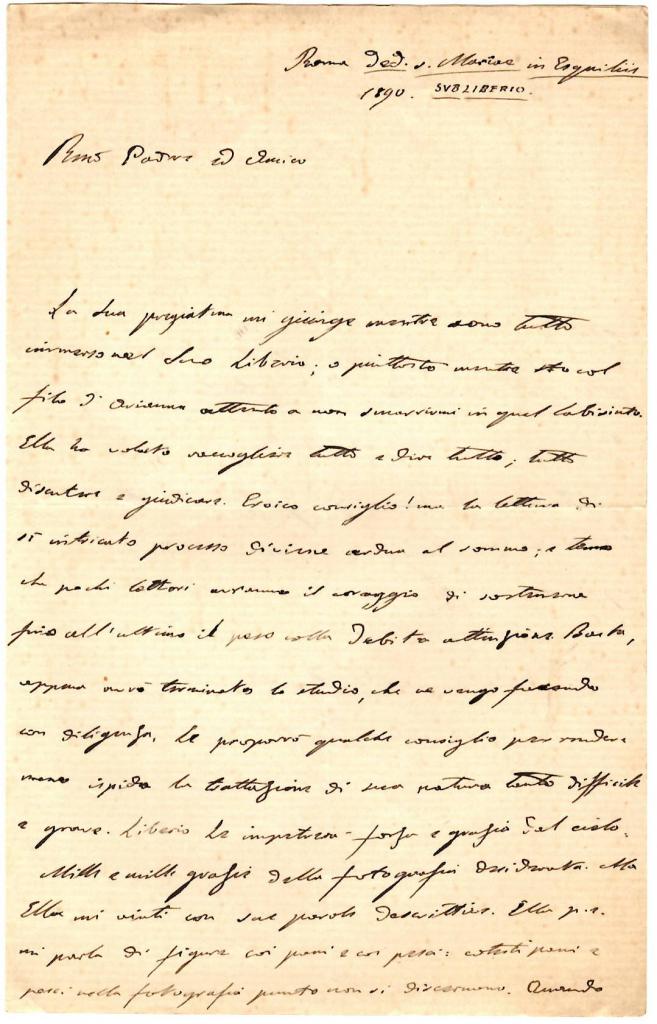 Roma Ded. s. Mariae in Esquiliis
1890. SVB LIBERIO.
Rmo Padre ed Amico
La Sua pregiatma mi giunge mentre sono tutto
immerso nel Suo Liberio; o piuttosto mentre sto col
filo d'Arianna attento a non smarrirmi in quel labirinto.
Ella ha voluto raccogliere tutto e dire tutto; tutto
discutere e giudicare. Eroico consiglio! ma la lettura di
sì intricato processo diviene ardua al sommo; e temo
che pochi lettori avranno il coraggio di sostenerne
fino all'ultimo il peso colla debita attenzione. Basta,
appena avrò terminato lo studio, che ne vengo facendo
con diligenza, Le proporrò qualche consiglio per rendere
meno ispida la trattazione di sua natura tanto difficile
e grave. Liberio Le impetrerà forza e grazia dal cielo.
Mille e mille grazie della fotografia desiderata. Ma
Ella mi aiuti con sue parole descrittive. Ella p. e.
mi parla di figure coi pani e coi pesci: cotesti pani e
pesci nella fotografia punto non si discernono. Quando